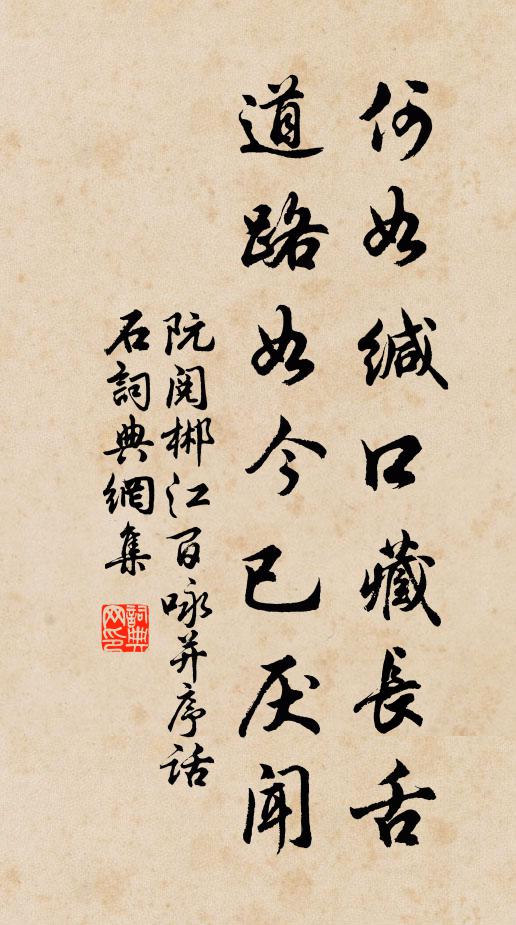 何如缄口藏長舌
道路如今已厌聞
阮閱郴江百咏并序話
石詞典網集
詞典网印